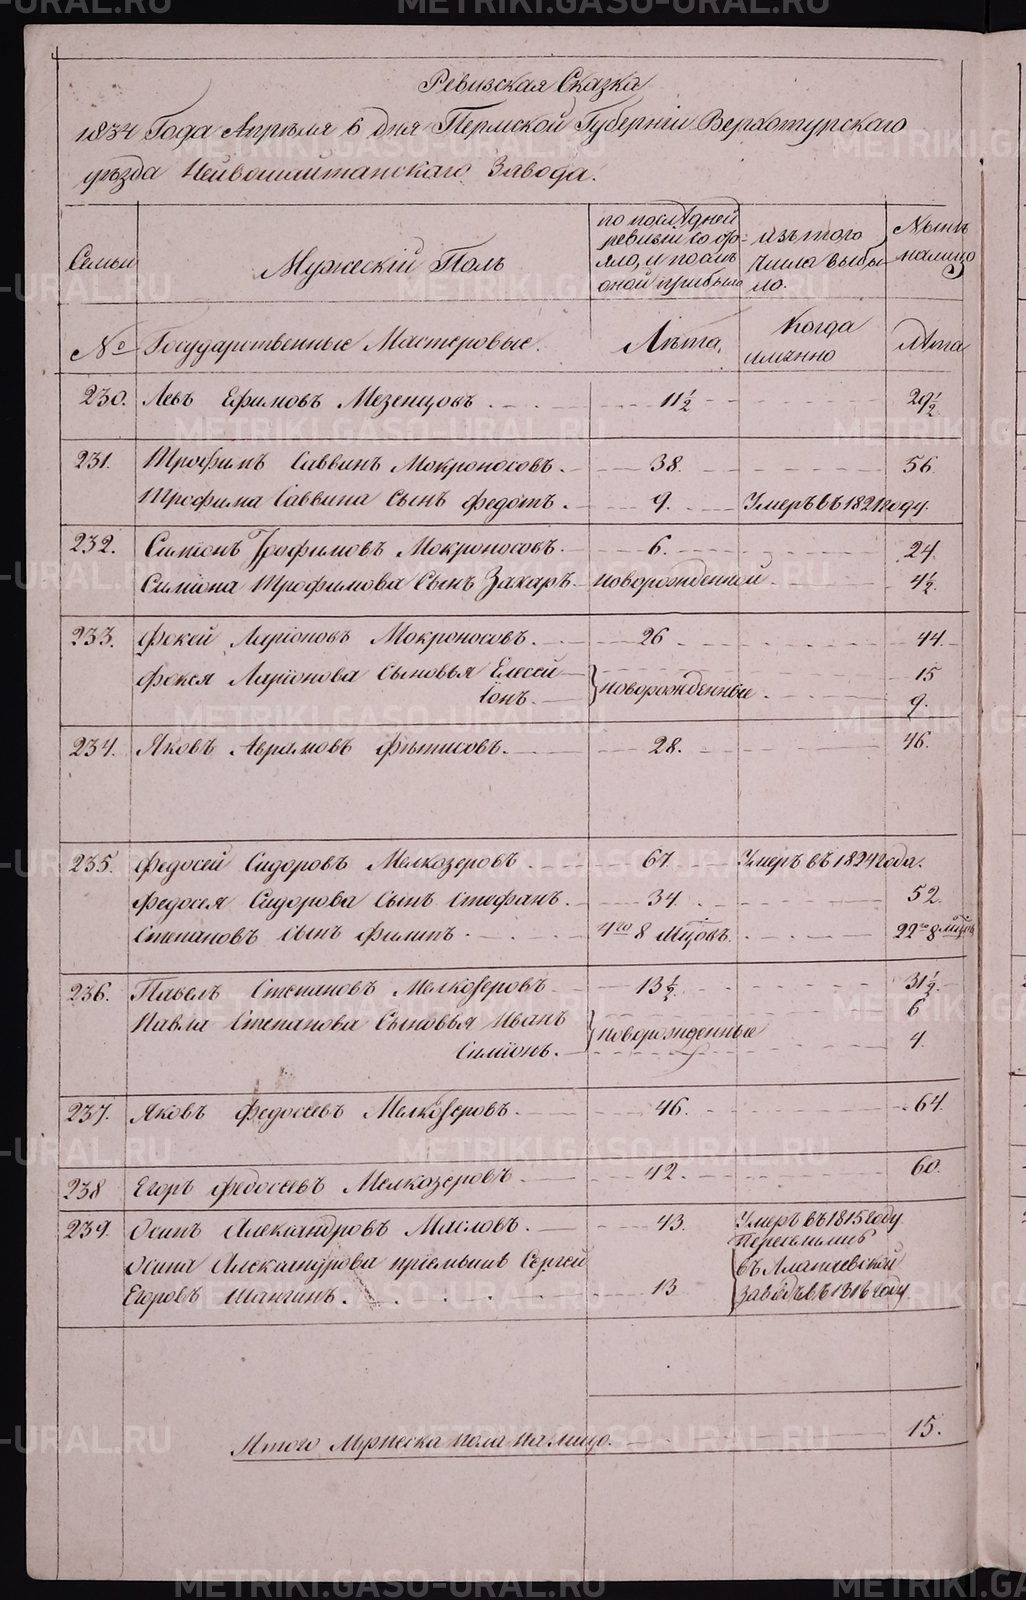 Ревизская Сказка
1834 Года Апрѣля 6 дня Пермской Губерніи Верхотурскаго
уѣзда Нейвошайтанскаго Завода.
Семьи Мужескій Полъ по послѣдней ревизіи состояло, и послѣ оной прибыло изъ того числа выбыло. Нынѣ налицо
№ Государственные Мастеровые. Лѣта, Когда имянно Лѣта
230. Левъ Ефимовъ Мезенцовъ 11½ 29½
231. Трофимъ Саввинъ Мокроносовъ. 38. 56.
Трофима Саввина Сынъ Федотъ. 9. Умеръ въ 1821 году.
232. Симіонъ Трофимовъ Мокроносовъ. 6. 24.
Симіона Трофимова Сынъ Захаръ новорожденной 4½.
233. Фокей Ларіоновъ Мокроносовъ. 26 44.
Фокея Ларіонова Сыновья Елесей новорожденные. 15
Іонъ. 9.
234. Яковъ Аврамовъ Фѣтисовъ. 28. 46.
235. Федосей Сидоровъ Мелкозеровъ 67. Умеръ въ 1824 года.
Федосея Сидорова Сынъ Стефанъ. 34. 52.
Степановъ Сынъ Филипъ. 4го 8 мцовъ. 22го 8 мцовъ
236. Павелъ Степановъ Мелкозеровъ 13½. 31½.
Павла Степанова Сыновья Иванъ новорожденные 6
Симіонъ. 4.
237. Яковъ Федосеевъ Мелкозеровъ. 46. 64.
238 Егоръ Федосеевъ Мелкозеровъ 42. 60.
239. Осипъ Александровъ Масловъ. 43. Умеръ въ 1815 году
Осипа Александрова приемышъ Сергей
Егоровъ Шангинъ. 13 въ Алапаевской заводъ въ 1816 году
Итого Мужеска пола налицо. 15.
METRIKI.GASO-URAL.RU